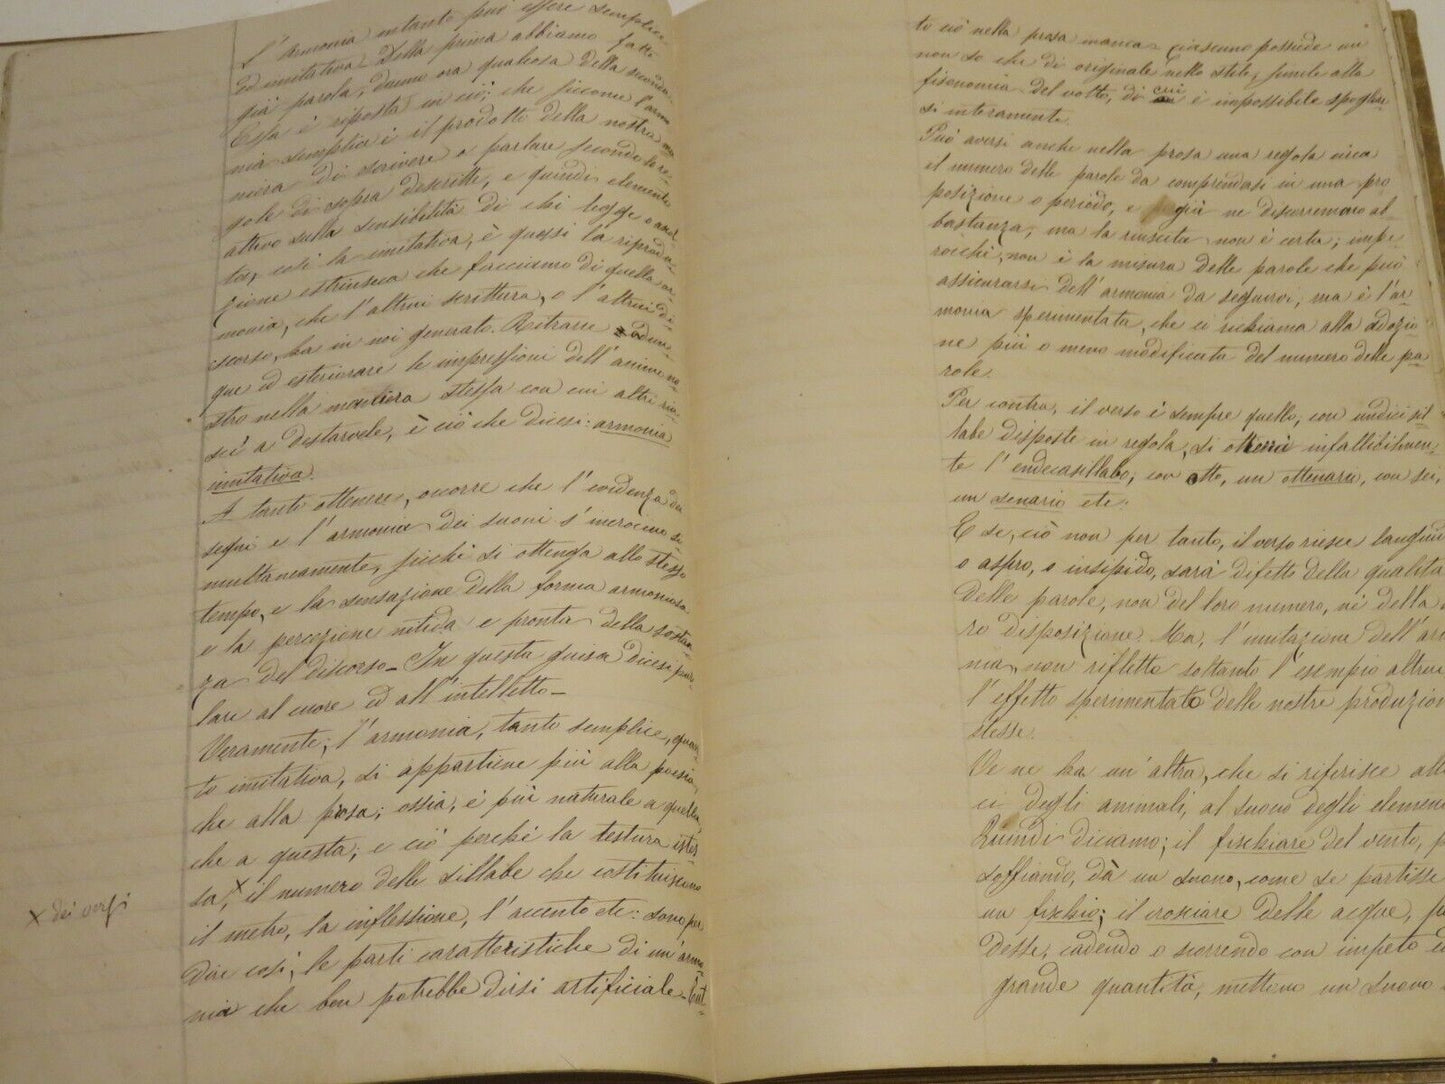 L'Armonia intanto può essere semplice
ed imitativa. Della prima abbiamo fatto
già parola, diamo ora qualcosa della seconda
Essa è riposta in ciò; che siccome l'armo
nia semplice è il prodotto della nostra ma
niera di scrivere e parlare secondo le re-
gole di sopra descritte, e quindi elemento
attivo sulla sensibilità di chi legge o ascol
ta, così la imitativa, è quasi la riprodu-
zione estrinseca che facciamo di quella ar
monia, che l'altrui scrittura, o l'altrui di-
scorso, ha in noi generato. Ritrarre adun-
que ed esteriorare le impressioni dell'animo no
stro nella maniera stessa con cui altri riu-
scì a destarvele, è ciò che dicesi: armonia
imitativa.
A tanto ottenere, occorre che l'evidenza dei
segni e l'armonia dei suoni s'incrocino si
multaneamente, sicché si ottenga allo stesso
tempo, e la sensazione della forma armoniosa
e la percezione nitida e pronta della sostan
za del discorso_ In questa guisa dicesi par-
lare al cuore ed all'intelletto_
Veramente, l'armonia, tanto semplice, quan
to imitativa, si appartiene più alla poesia
che alla prosa; ossia, è più naturale a quella
che a questa; e ciò perché la testura istes
sa, x il numero delle sillabe che costituiscono
il metro, la inflessione, l'accento etc: sono per
dir così, le parti caratteristiche di un'armo
nia che ben potrebbe dirsi artificiale_ Tut-
x dei versi
to ciò nella prosa manca_ ciascuno possiede un
non so che di originale nello stile, simile alla
fisonomia del volto, di cui è impossibile spogliar
si interamente.
Può aversi anche nella prosa una regola circa
il numero delle parole da comprendersi in una pro
posizione o periodo, e già ne discorremmo ab
bastanza, ma la riuscita non è certa; impe
rocché, non è la misura delle parole che può
assicurarsi dell'armonia da seguirci, ma è l'ar
monia sperimentata, che ci richiama alla adozio
ne più o meno modificata del numero delle pa
role.
Per contro, il verso è sempre quello, con undici sil
labe disposte in regola, si otterrà infallibilmen-
te l'endecasillabo; con otto, un ottenario, con sei,
un senario etc:
E se, ciò non per tanto, il verso riesce languid
o aspro, o insipido, sarà difetto della qualità
delle parole, non del loro numero, né della
ro disposizione. Ma, l'imitazione dell'arm
nia, non riflette soltanto l'esempio altrui
l'effetto sperimentato delle nostre produzion
stesse.
Ve ne ha un'altra, che si riferisce all
ci degli animali, al suono degli elemen
Quindi diciamo; il fischiare del vento, p
soffiando, dà un suono, come se partisse
un fischio; il crosciare delle acque,
desse, cadendo o scorrendo con impeto ed
grande quantità, mettono un suono